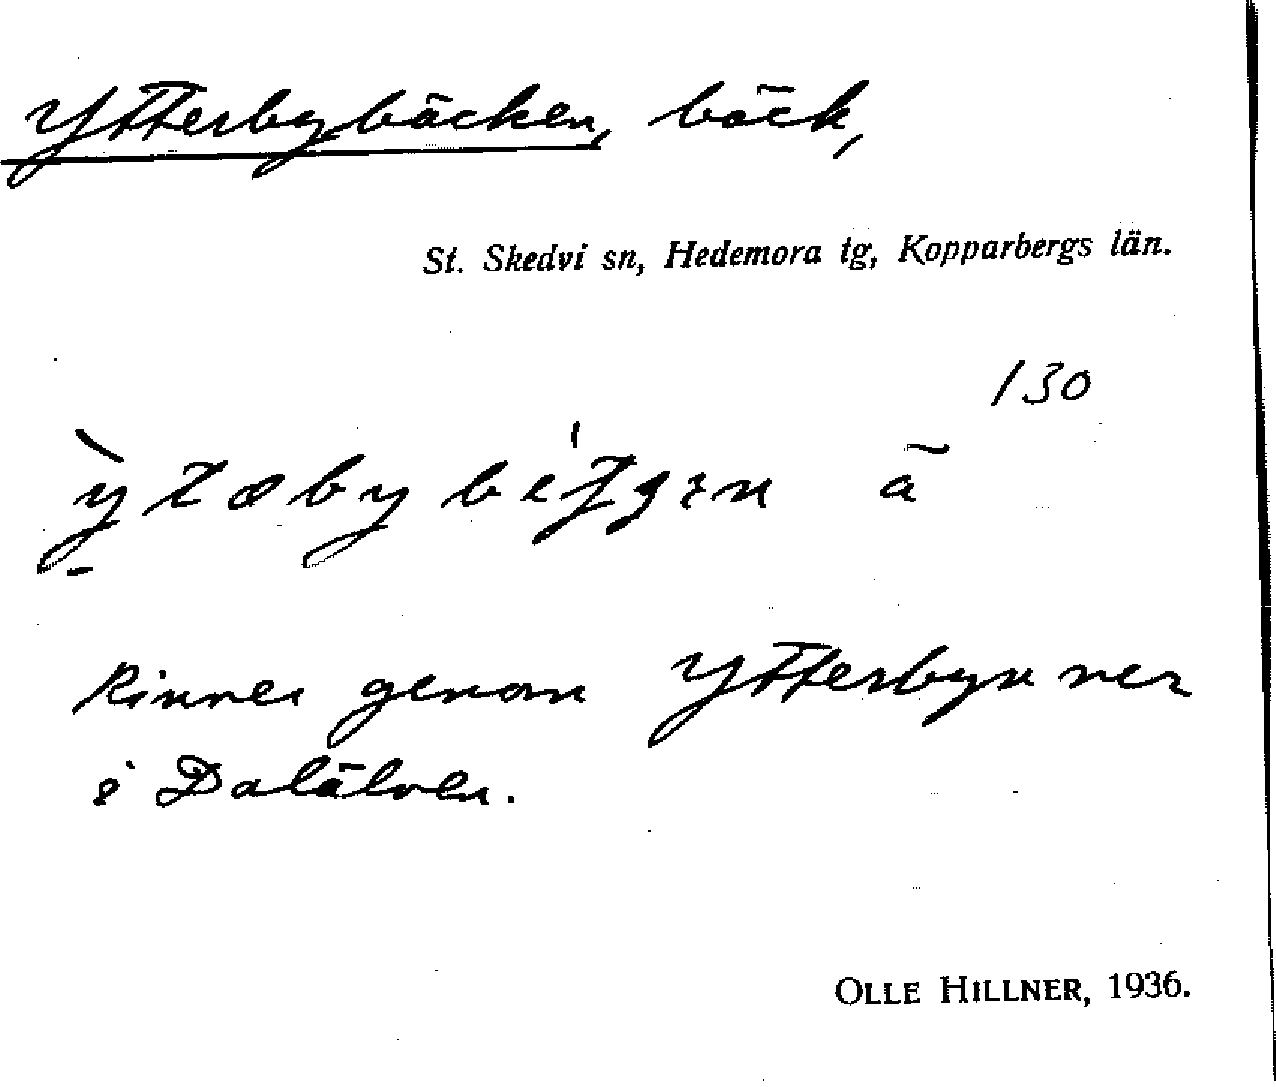 Ytterbybäcken, bäck,
St. Skedvi sn, Hedemora tg, Kopparbergs län.
130
ã
Rinner genom Ytterbyn ner
i Dalälven.
OLLE HILLNER, 1936.